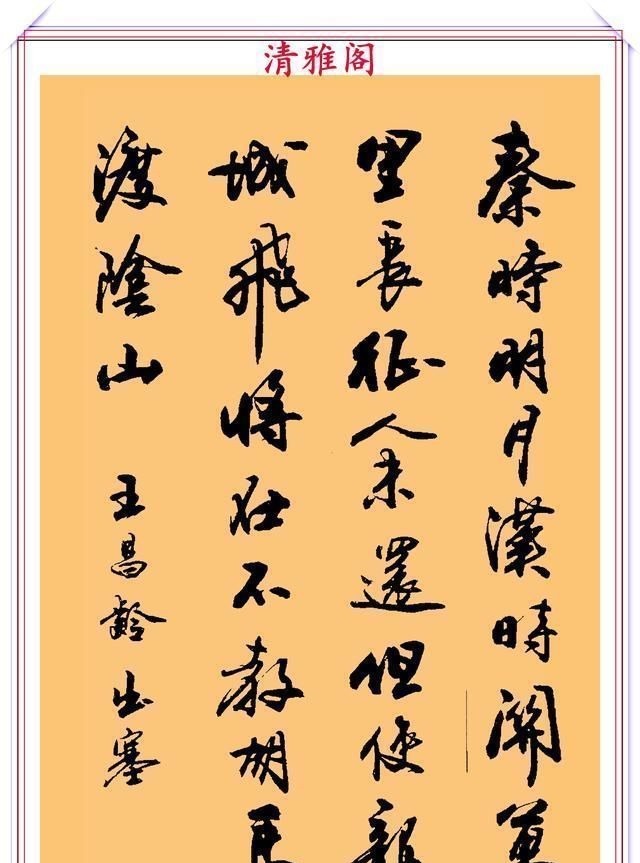 清雅阁
秦時明月漢時關萬
里長征人未還但使龍
城飛將在不教胡馬
渡陰山 王昌齡出塞